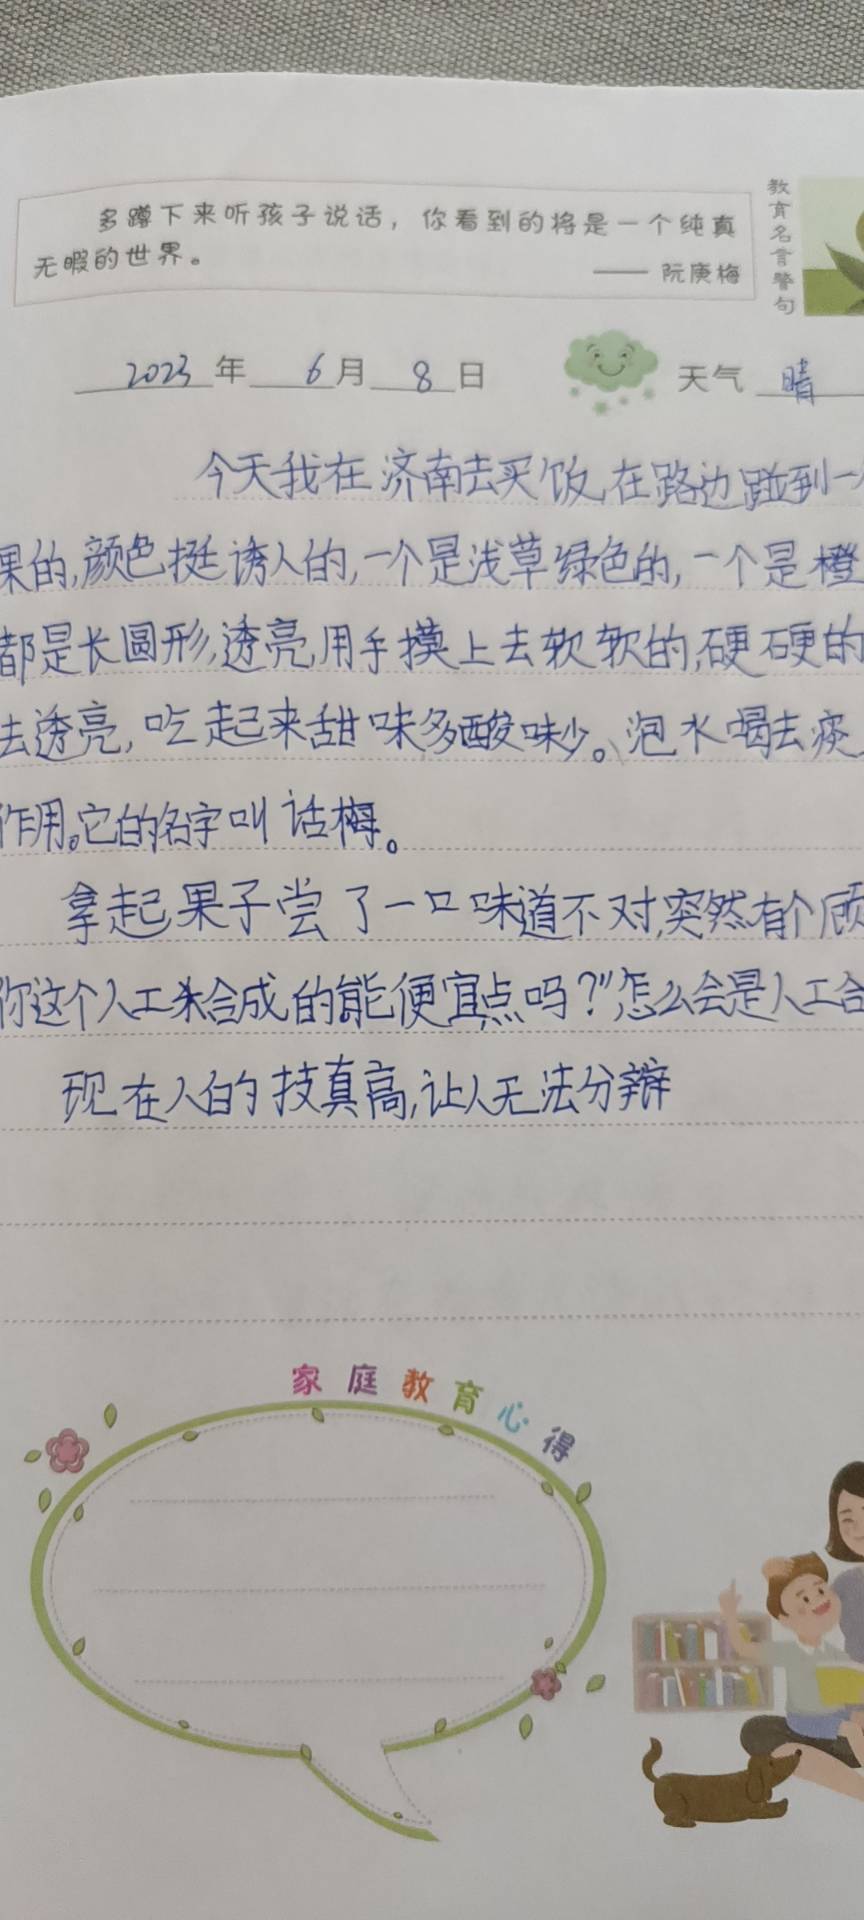 多蹲下来听孩子说话，你看到的将是一个纯真
无暇的世界。
—— 阮庚梅
教育名言警句
2023年 6月 8日 天气 晴
今天我在济南去买饭,在路边碰到一
果的,颜色挺诱人的,一个是浅草绿色的,一个是橙
都是长圆形,透亮,用手摸上去软软的,硬硬的
去透亮,吃起来甜味多酸味少。泡水喝去痰
作用。它的名字叫话梅。
拿起果子尝了一口味道不对,突然有个顾
你这个人工合成的能便宜点吗?"怎么会是人工合
现在人的技真高,让人无法分辩
家庭教育心得